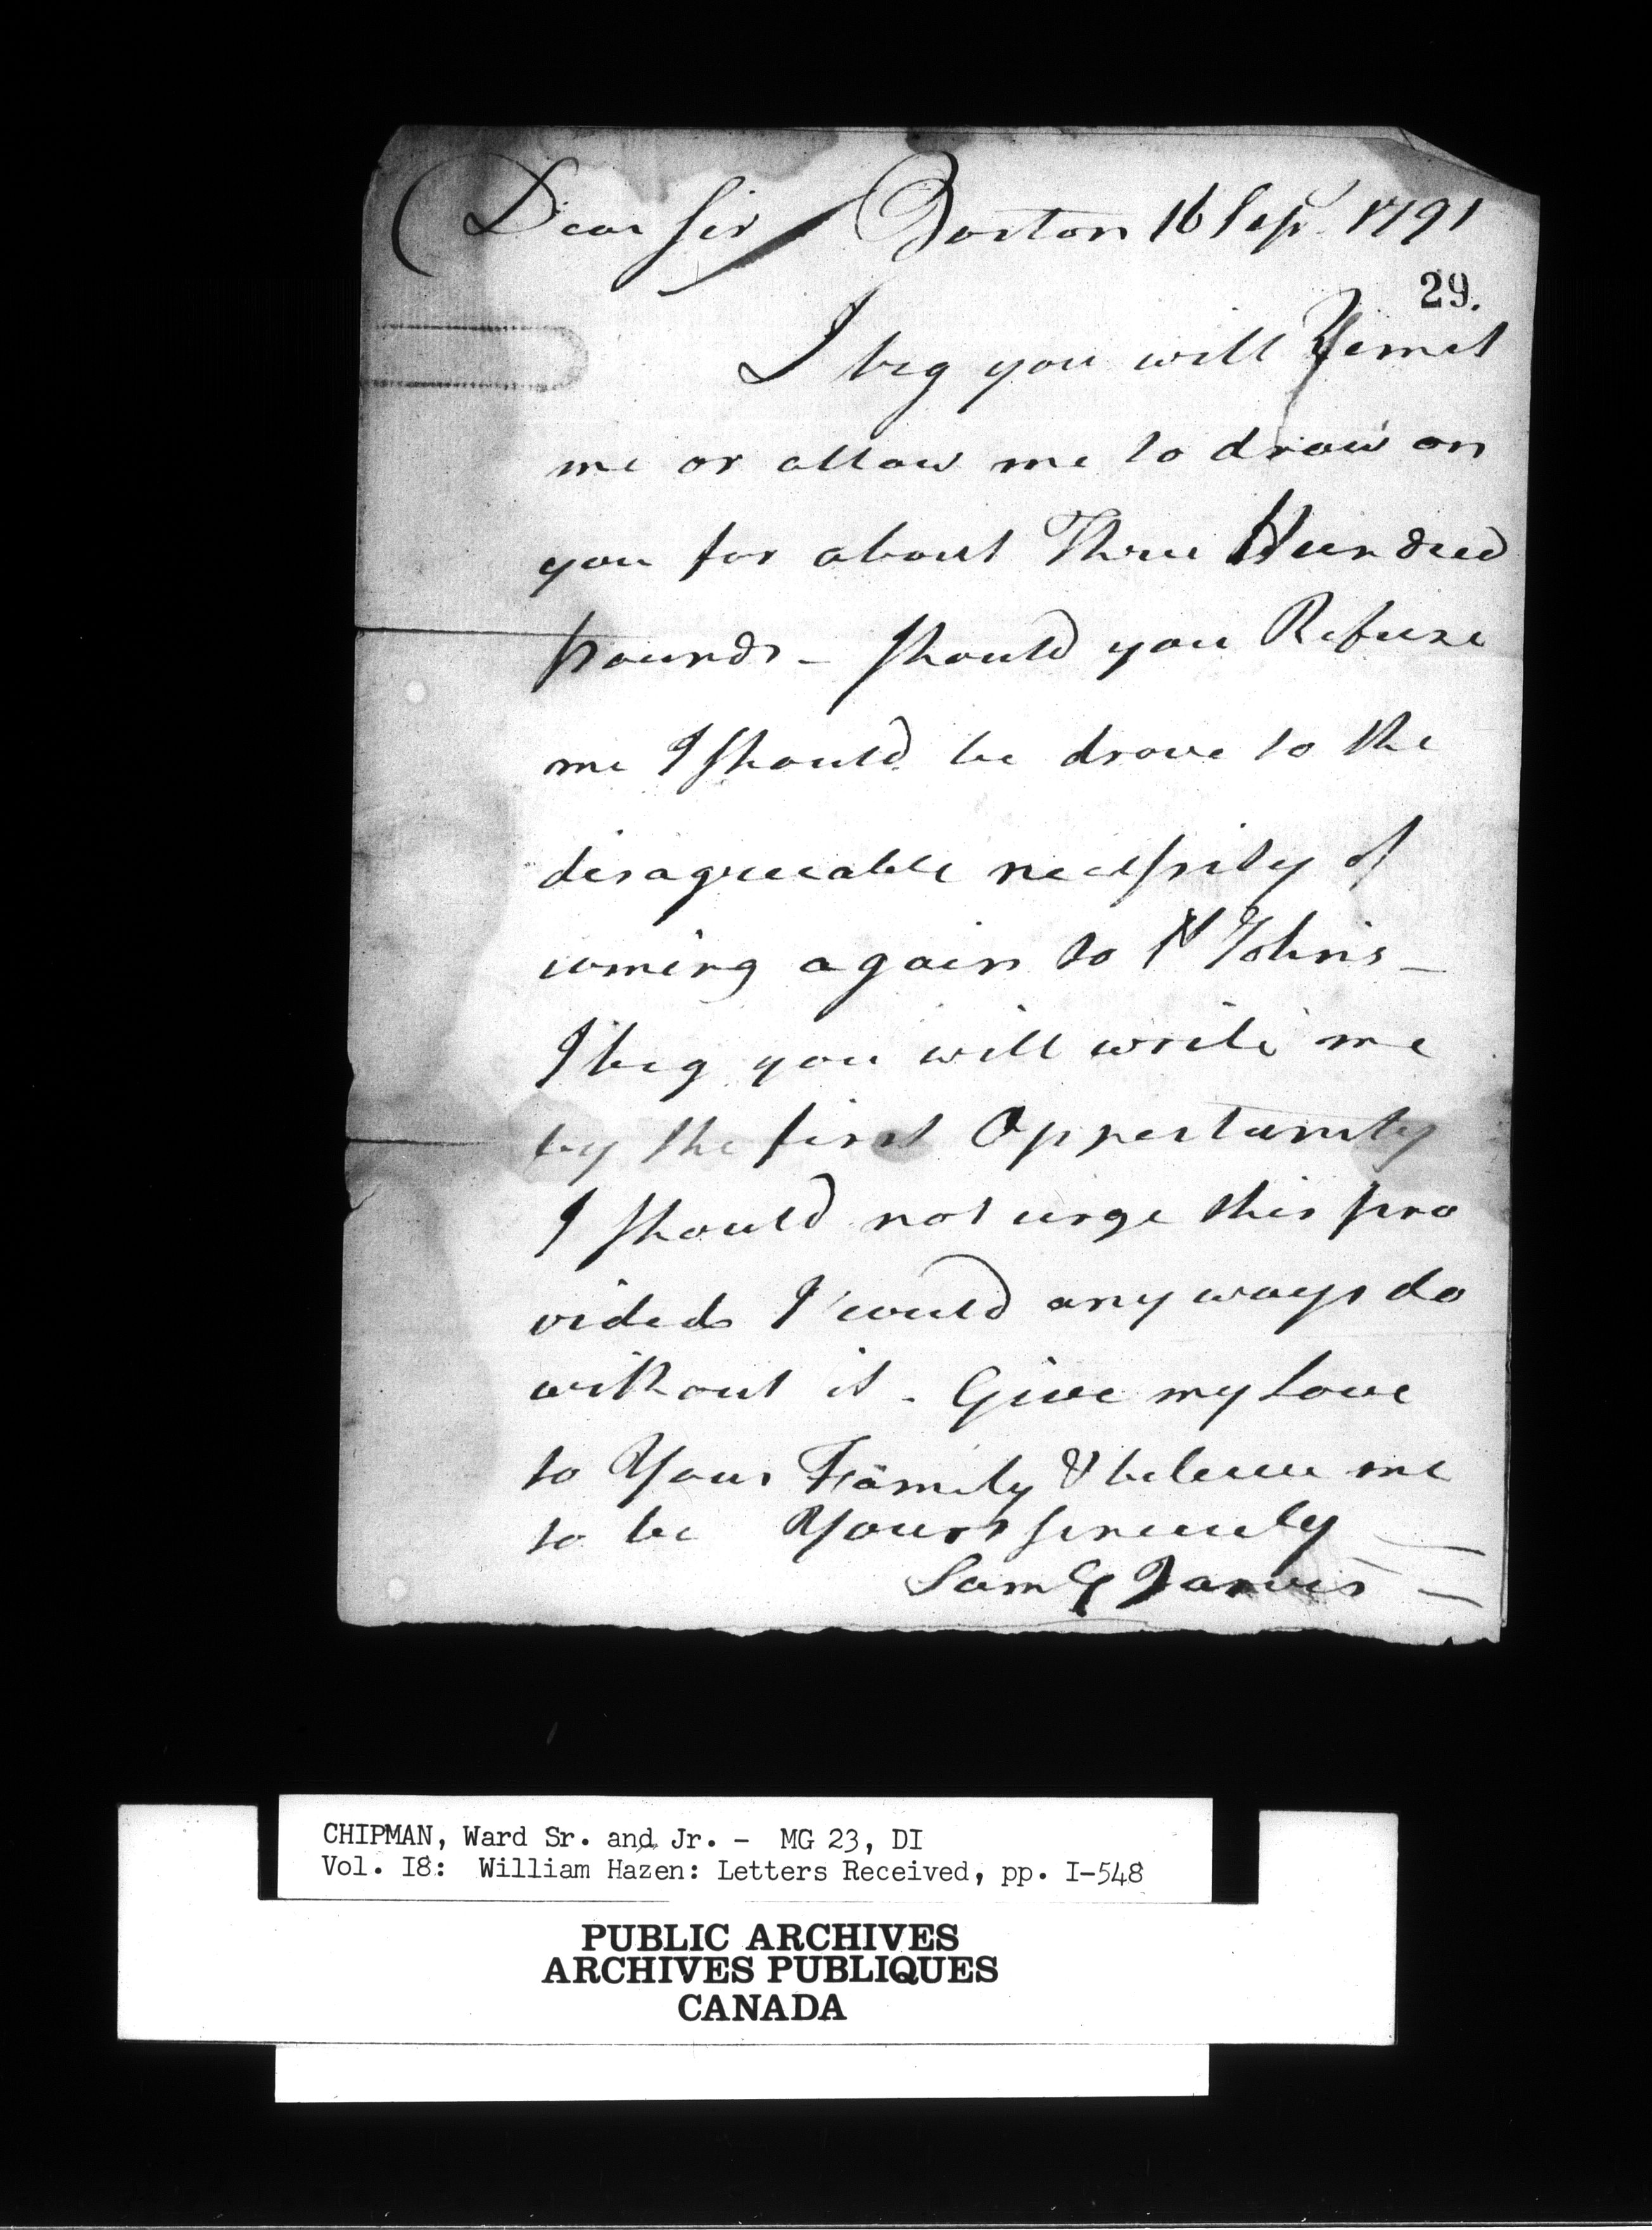 Dear Sir Boston 16 Sepr 1791
29.
I beg you will Remit
me or allow me to draw on
you for about Three Hundred
pounds - Should you Refuse
me I Should be drove to the
disagreeable necessity of
coming again to St Johns -
I beg you will write me
by the first Oppertunity
I Should not urge this pro
vided I could any ways do
without it - Give my Love
to Your Family & beleive me
to be Yours Sincerely
Saml G Jarvis
CHIPMAN, Ward Sr. and Jr. - MG 23, DI
Vol. I8: William Hazen: Letters Received, pp. I-548
PUBLIC ARCHIVES
ARCHIVES PUBLIQUES
CANADA